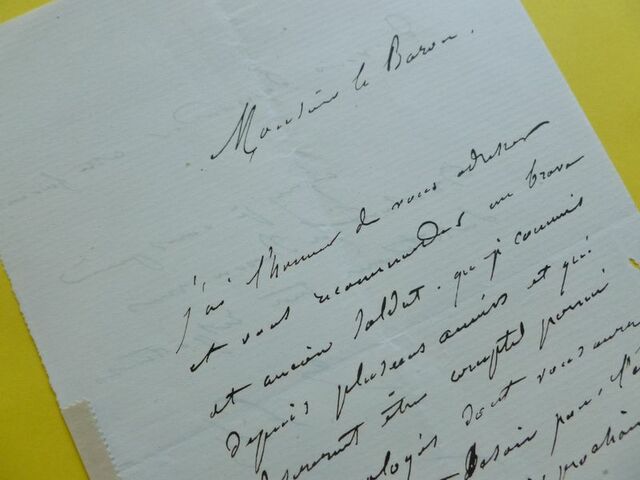 Monsieur le Baron.
j'ai l'honneur de vous adresser
et vous recommander un brave
et ancien soldat. que je connais
depuis plusieurs années et qui
être compté parmi
dont vous aurez
besoin pour
prochain